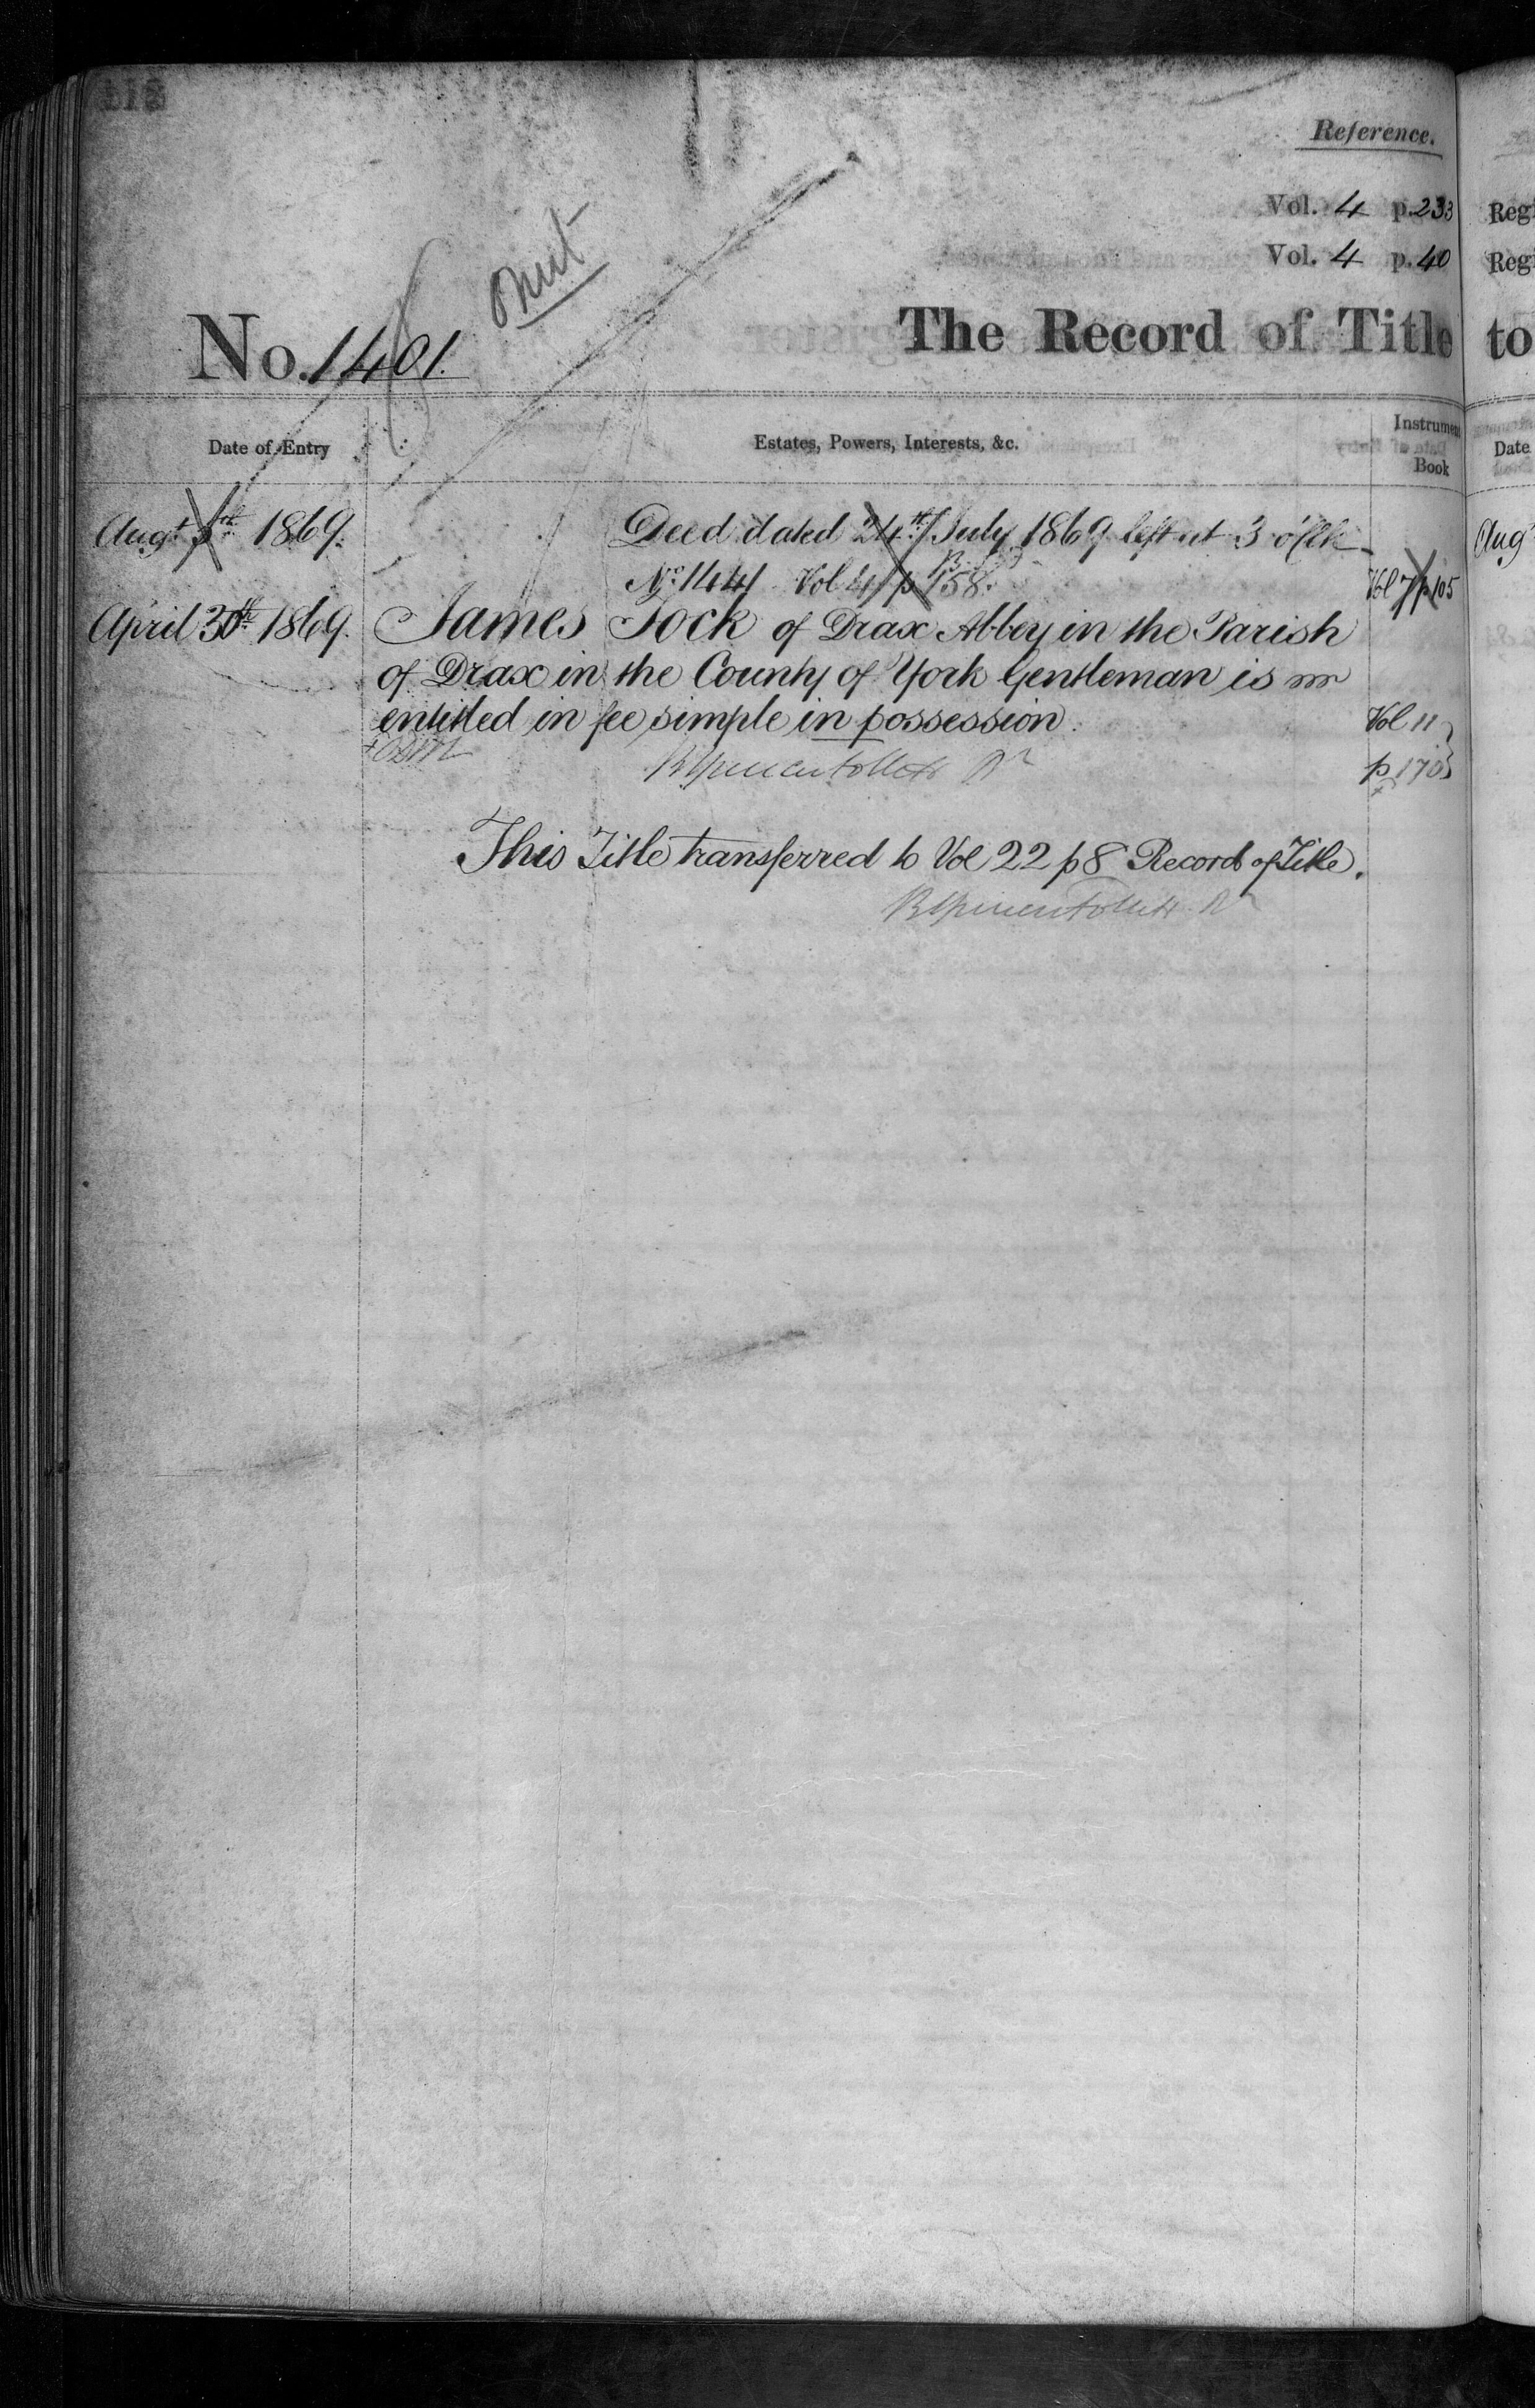 112
Reference.
Vol. 4 p. 233
Vol. 4 p. 40
Omit
No. 1401.
The Record of Title
Date of Entry
Estates, Powers, Interests, &c.
Instrument
Book
Augt 5th 1869.
Deed dated 24th July 1869 left at 3 o'Clk
No. 1441 Vol 4 p 158.
Vol 7 p 105
April 30th 1869.
James Tock of Drax Abbey in the Parish
of Drax in the County of York Gentleman is
entitled in fee simple in possession.
Vol 11
p 170
This Title transferred to Vol 22 p 8 Record of Title.
Reg
Reg
to
Date
Aug